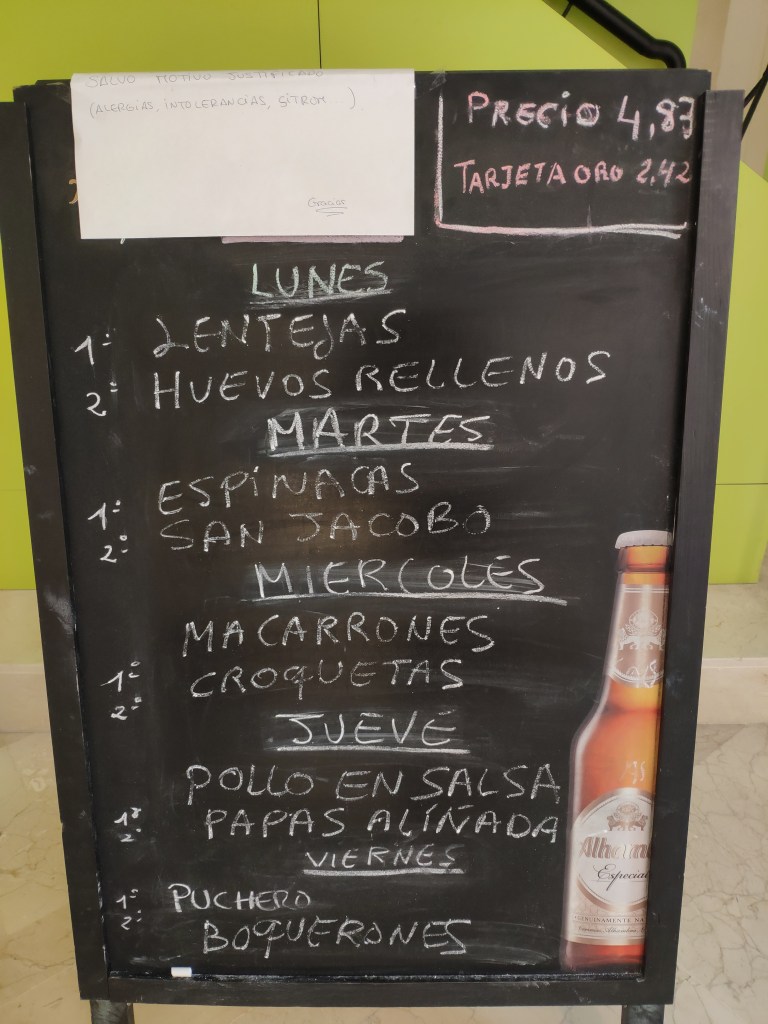 SALVO MOTIVO JUSTIFICADO
(ALERGIAS, INTOLERANCIAS, SÍTROM...)
Gracias
PRECIO 4,83
TARJETA ORO 2,42
LUNES
1º LENTEJAS
2º HUEVOS RELLENOS
MARTES
1º ESPINACAS
2º SAN JACOBO
MIERCOLES
1º MACARRONES
2º CROQUETAS
JUEVE
1º POLLO EN SALSA
2º PAPAS ALIÑADA
VIERNES
1º PUCHERO
2º BOQUERONES
Especial